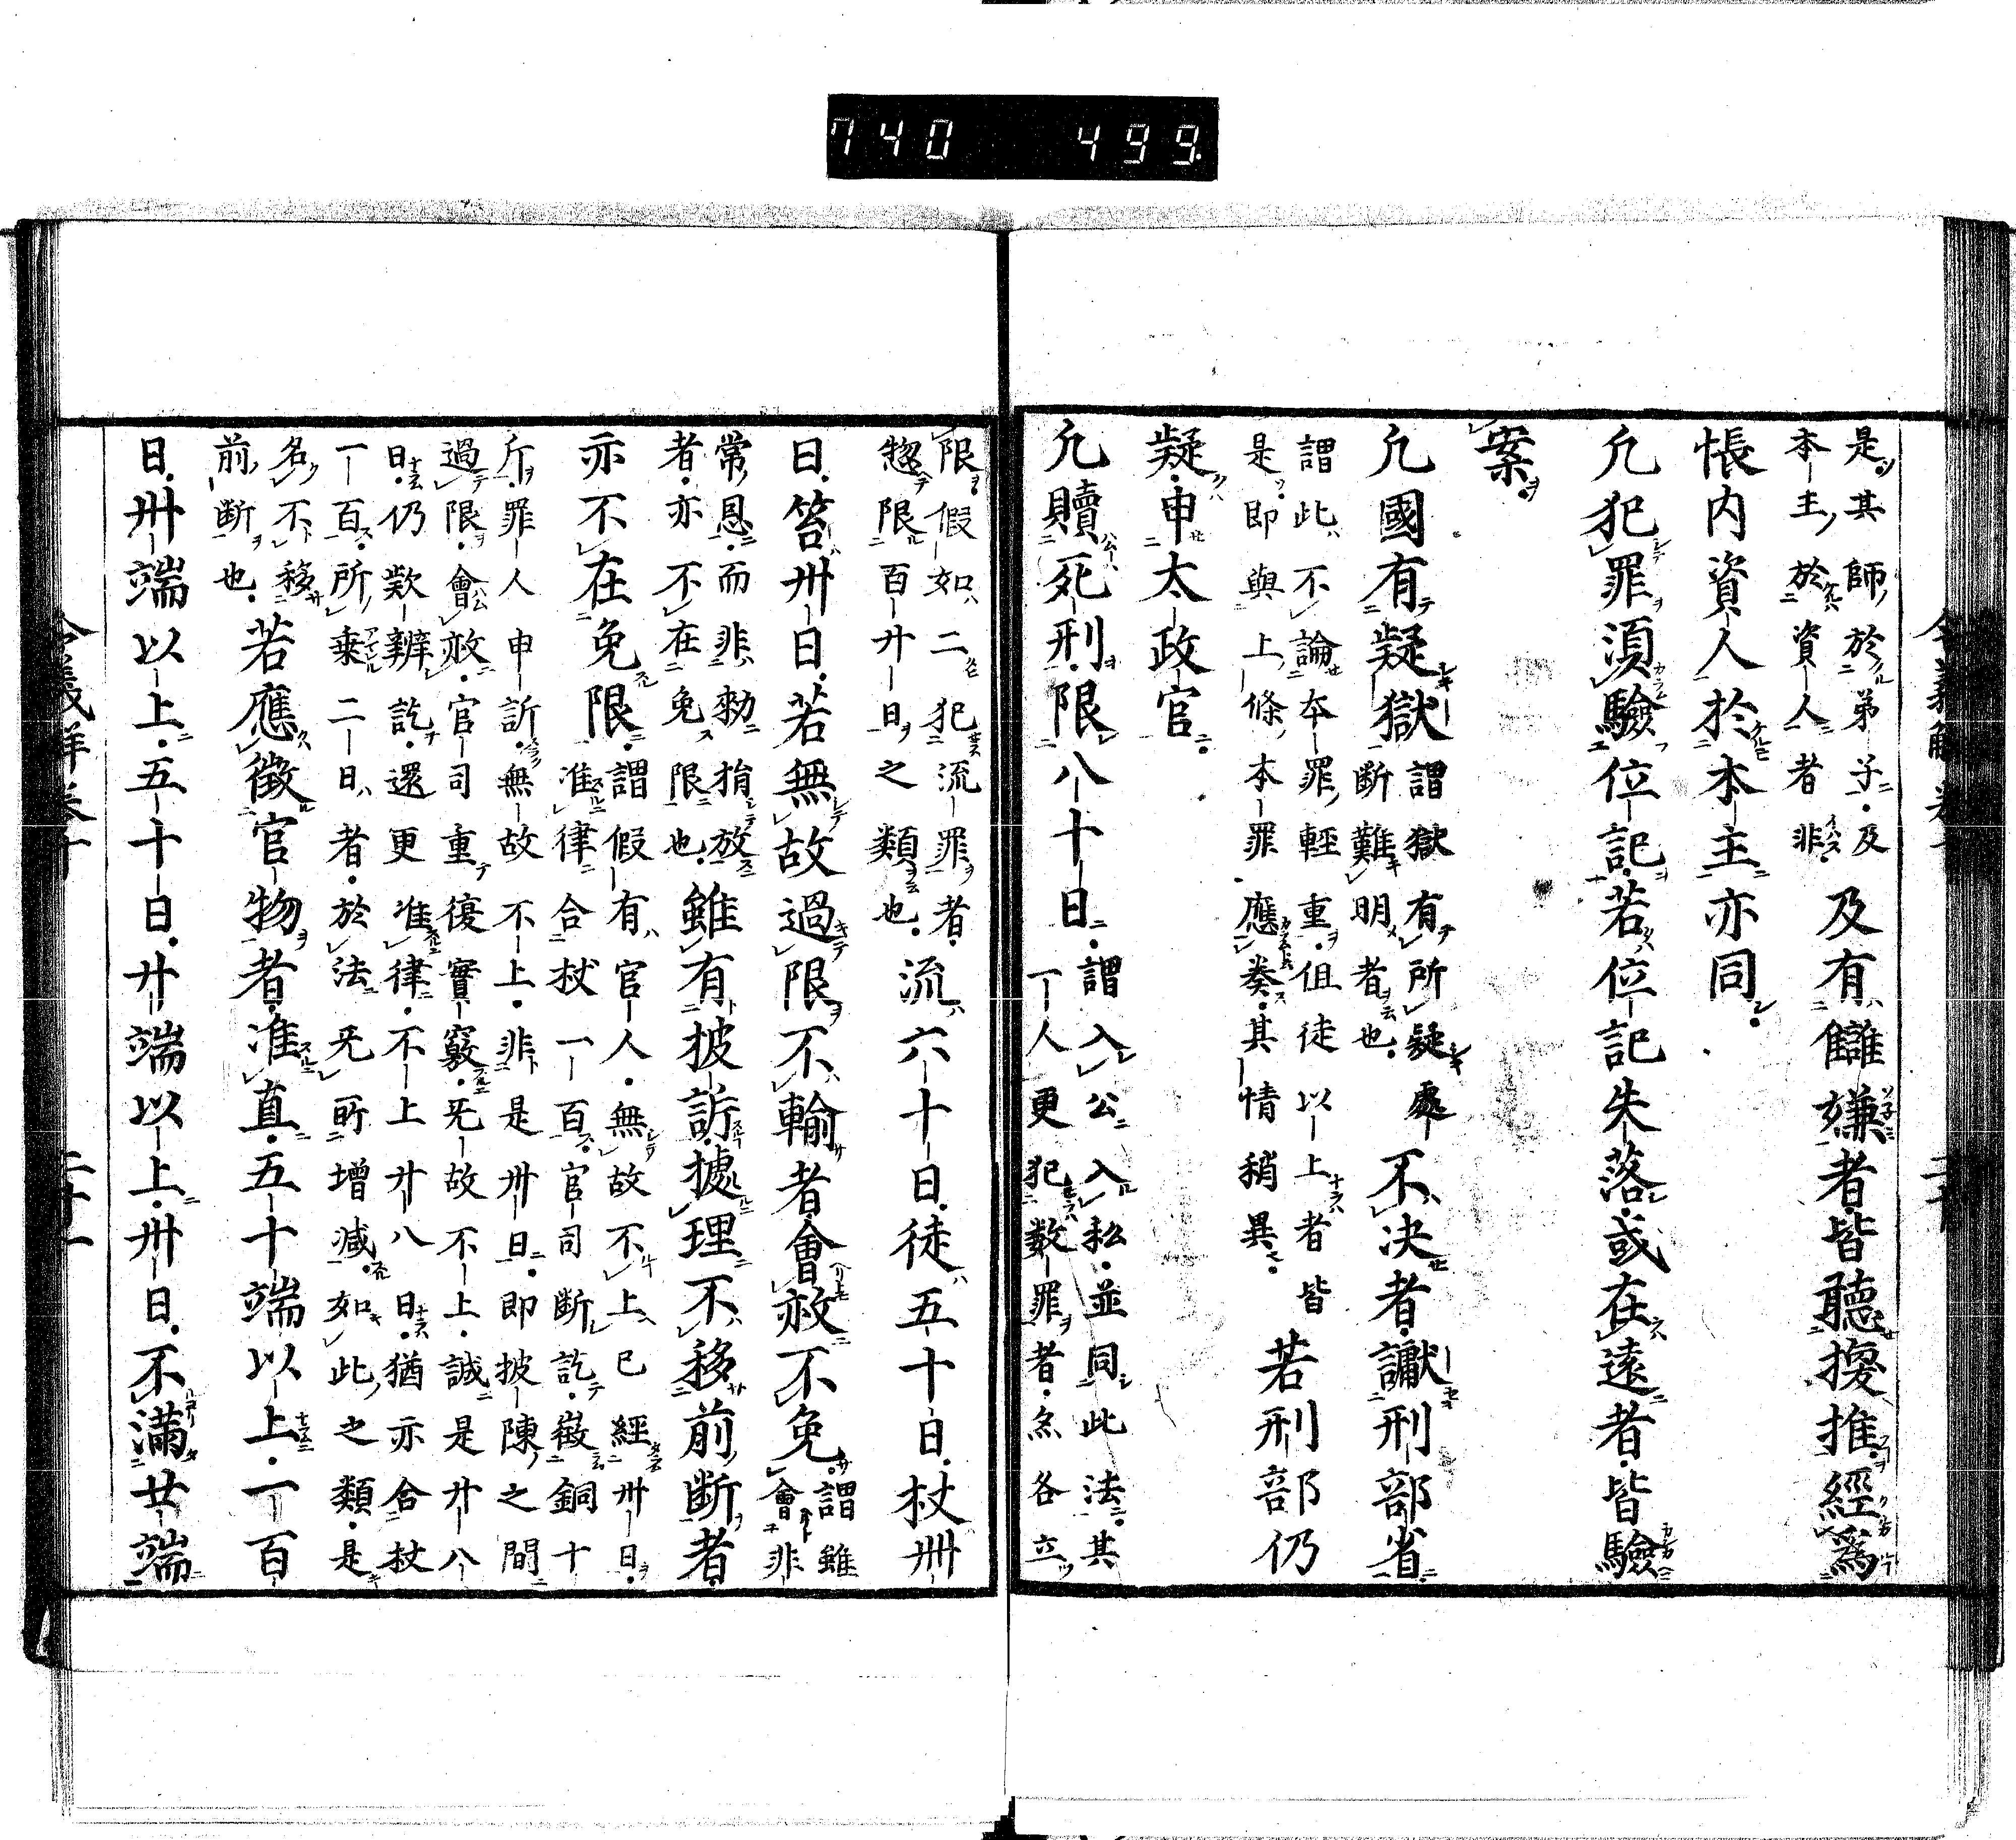 740 499
是其師於弟子及
本主於資人者非
及有讎嫌者皆聽換推經爲
帳内資人於本主亦同
凡犯罪須驗位記若位記失落或在遠者皆驗
案
凡國有疑獄
謂獄有所疑處
断難明者也
不決者讞刑部省
謂此不論本罪輕重但徒以上者皆
是即與上條本罪應奏其情稍異
若刑部仍
疑申太政官
凡贖死刑限八十日
謂入公入私並同此法其
一人更犯数罪者亦各立
限假如二犯流罪者
惣限百廿日之類也
流六十日徒五十日杖卌
日笞卅日若無故過限不輸者會赦不免
謂雖
會非
常恩而非勅指放
者亦不在免限也
雖有披訴據理不移前断者
亦不在免限
謂假有官人無故不上已經卅日
准律合杖一百官司断訖徴銅十
斤罪人申訴無故不上非是卅日即披陳之間
過限會赦官司重復實竅旡故不上誠是廿八
日仍欵辨訖還更准律不上廿八日猶亦合杖
一百所乗二日者於法旡所増減如此之類是
名不移
前断也
若應徴官物者准直五十端以上一百
日卅端以上五十日廿端以上卅日不滿廿端